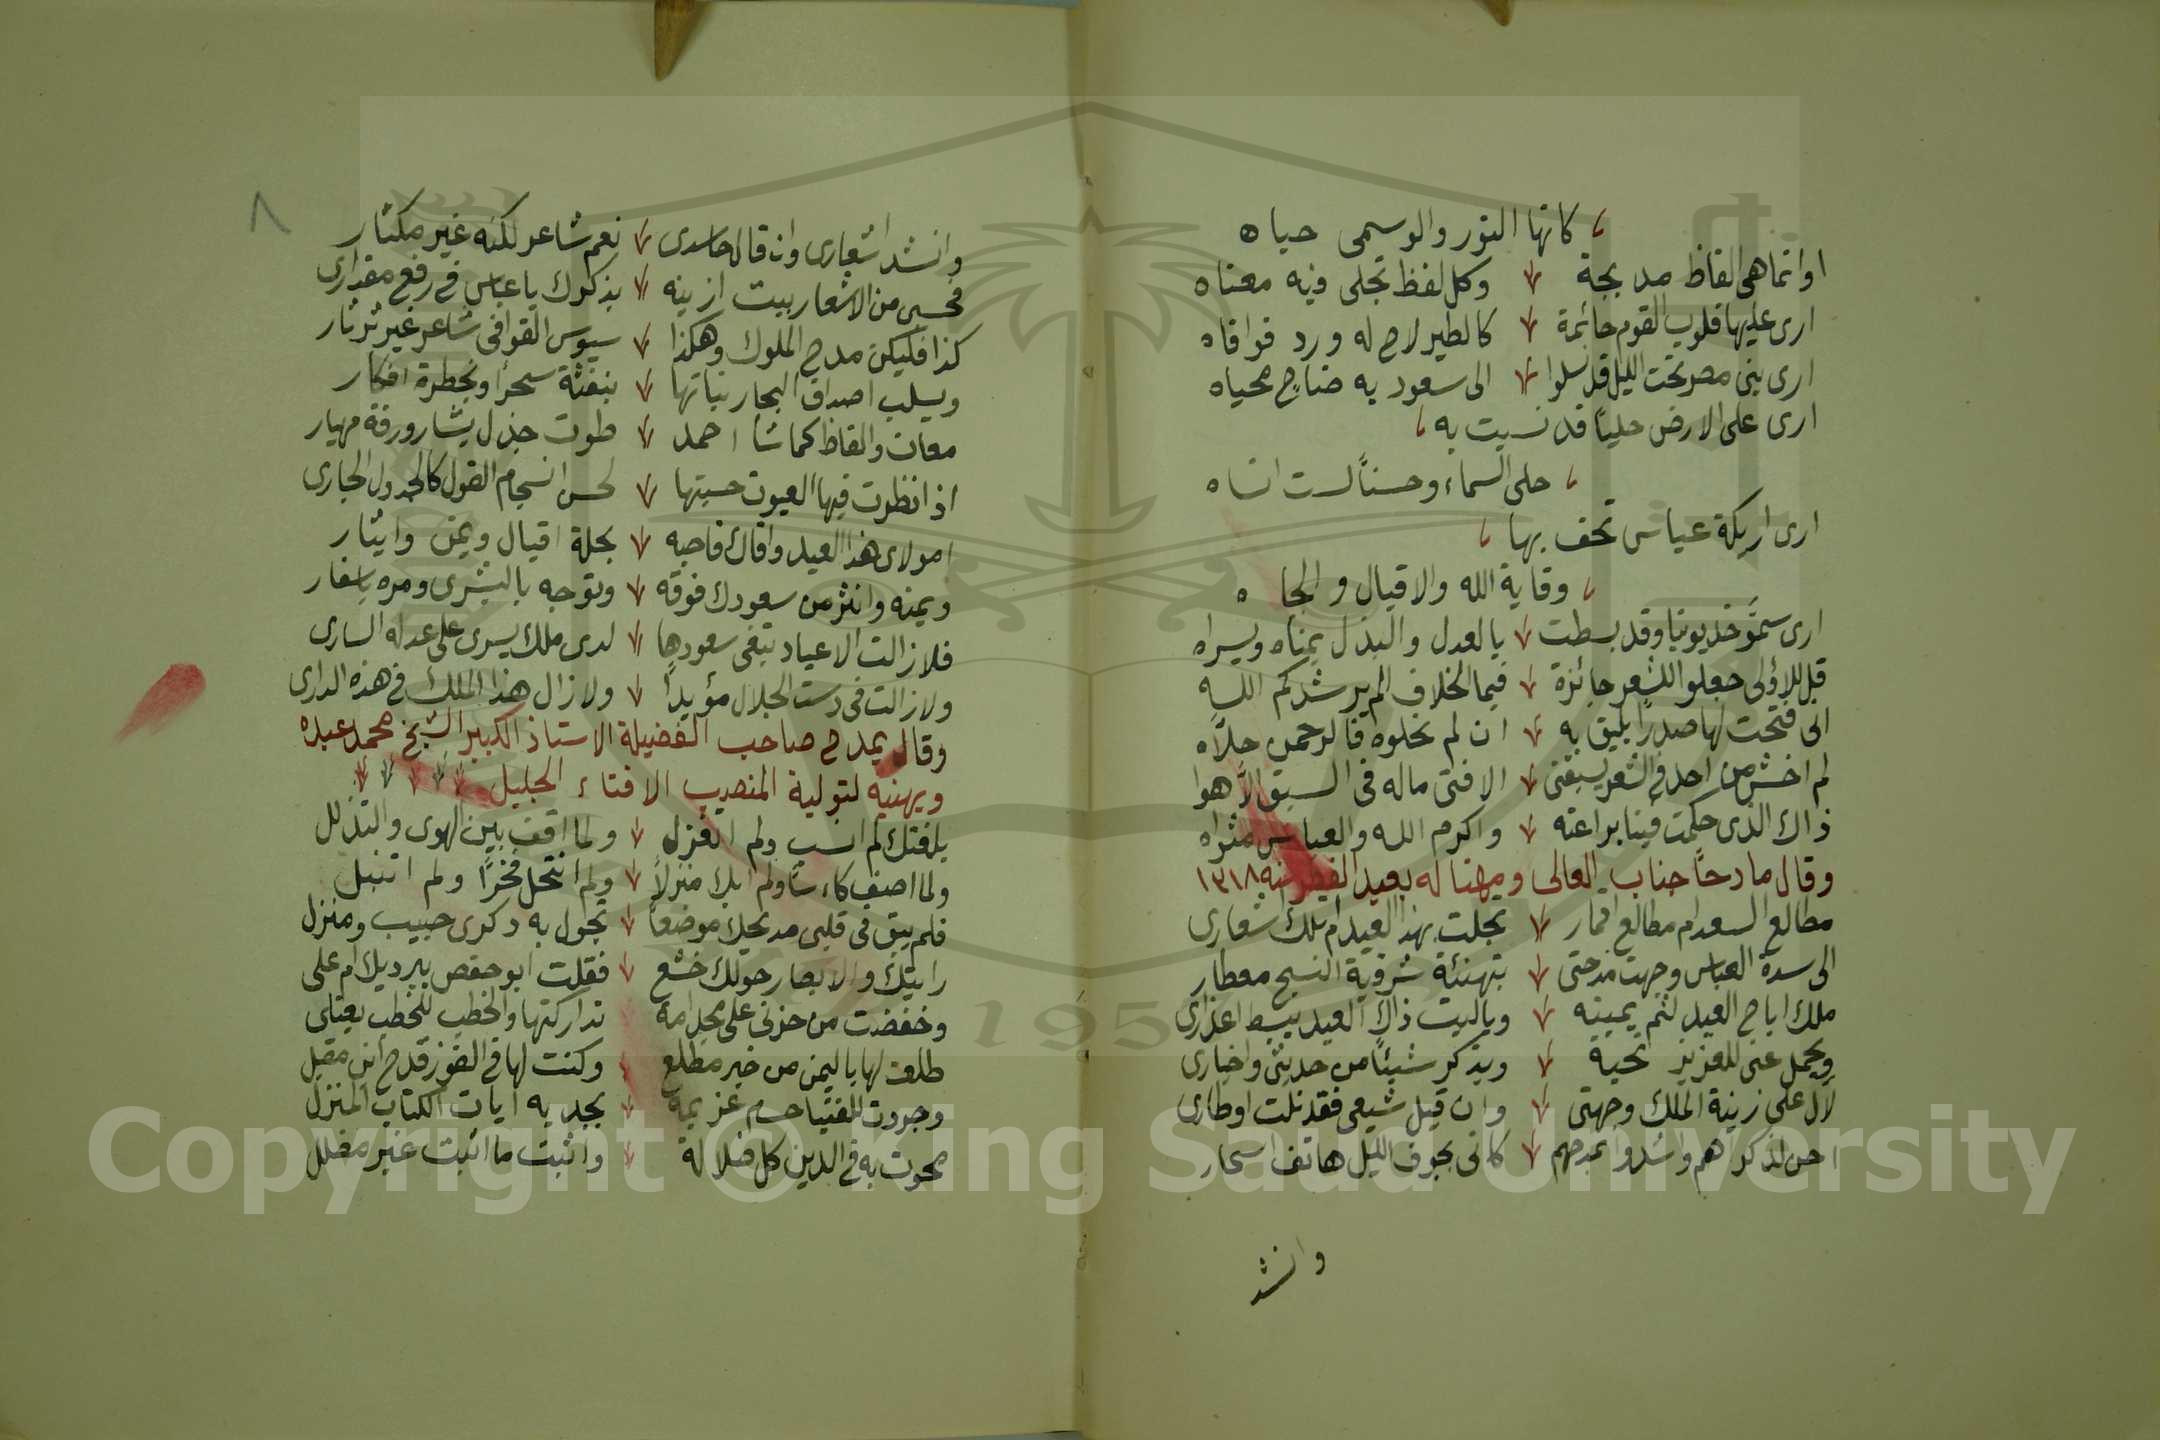 كانها النور والوسمى حياه
او انما هى الفاظ مدبجة وكل لفظ تجلى فيه معناه
ارى عليها قلوب القوم حائمة كالطير لاح له ورد فوافاه
ارى بنى مصر تحت الليل قد نسلوا الى سعود به ضاح محياه
ارى على الارض حليًا قد نسيت به
حلى السماء وحسنًا لست انساه
ارى اريكة عباس تحف بها
وقاية الله والاقيال والجاه
ارى سمّو خديوينا وقد بسطت بالعدل والبذل يمناه ويسراه
قل للاؤلى جعلوا للشعر جائزة فيما الخلاف الم يرشدكم الله
انى فتحت لها صدرًا يليق به ان لم تحلوه فالرحمن حلاّه
لم اخش من احد فى الشعر يسبقنى الا فتى ماله فى السبق الاّ هوا
ذاك الذى حكمت فينا براعته واكرم الله والعباس مثواه
وقال مادحًا جناب العالى ومهنا له بعيد الفطر سنه ١٣١٨
مطالع السعد ام مطالع اقمار تجلت بهذا العيد ام تلك اشعارى
الى سدة العباس وجهت مدحتى بتهنئة شوقية النسج معطار
مليك اباح العيد لثم يمينه وياليت ذاك العيد يبسط اعذارى
ويحمل عنى للعزيز تحية ويذكر شيئًا من حديثى واخبارى
لآل على زينة الملك وجهتى وان قيل شيعى فقد نلت اوطارى
احن لذكراهم واشدو بمدحهم كانى بجوف الليل هاتف اسحار
وانشد
٨
وانشد اشعارى وان قال حاسدى نعم شاعر لكنه غير مكثار
فحسبى من الاشعار بيت ازينه بذكرك يا عباس فى رفع مقدارى
كذا فليكن مدح الملوك وهكذا سيوس القوافى شاعر غير ثرثار
ويسلب اصداف البحار بناتها بنفثة سحر او بخطرة افكار
معان والفاظ كما شا احمد طوت جزل بشار ورقة مهيار
اذا نظرت فيها العيون حسبتها لحسن انسجام القول كالجدول الجارى
امولاى هذا العيد وافاك فاحبه بحلة اقبال ويمن وايثار
ويمنه وانثر من سعودك فوقه وتوجه بالبشرى ومره باسفار
فلا زالت الاعياد تبغى سعودها لدى ملك يسرى على عدله السارى
ولا زالت فى دست الجلال مؤيدًا ولا زال هذا الملك فى هذه الدارى
وقال يمدح صاحب الفضيلة الاستاذ الكبير الشيخ محمد عبده
ويهنيه لتولية المنصيب الافتاء الجليل
بلغتك لم انسب ولم اتغزل ولما اقف بين الهوى والتذلل
ولما اصف كاءسًا ولم ابك منزلًا ولم انتحل فخرًا ولم اتنبل
فلم يبق فى قلبى مديحك موضعًا تجول به ذكرى حبيب ومنزل
رايتك والابصار حولك خشع فقلت ابو حفص ببرديك ام على
وخفضت من حزنى على مجد امة تداركتها والخطب للخطب يعتلى
طلعت لها باليمن من خير مطلع وكنت لها فى الفوز قدح ابن مقبل
وجردت للفتيا حسام عزيمة بحديه ايات الكتاب المنزل
محوت به فى الدين كل ضلالة واثبت ما اثبت غير مضلل
Copyright © King Saud University
1957